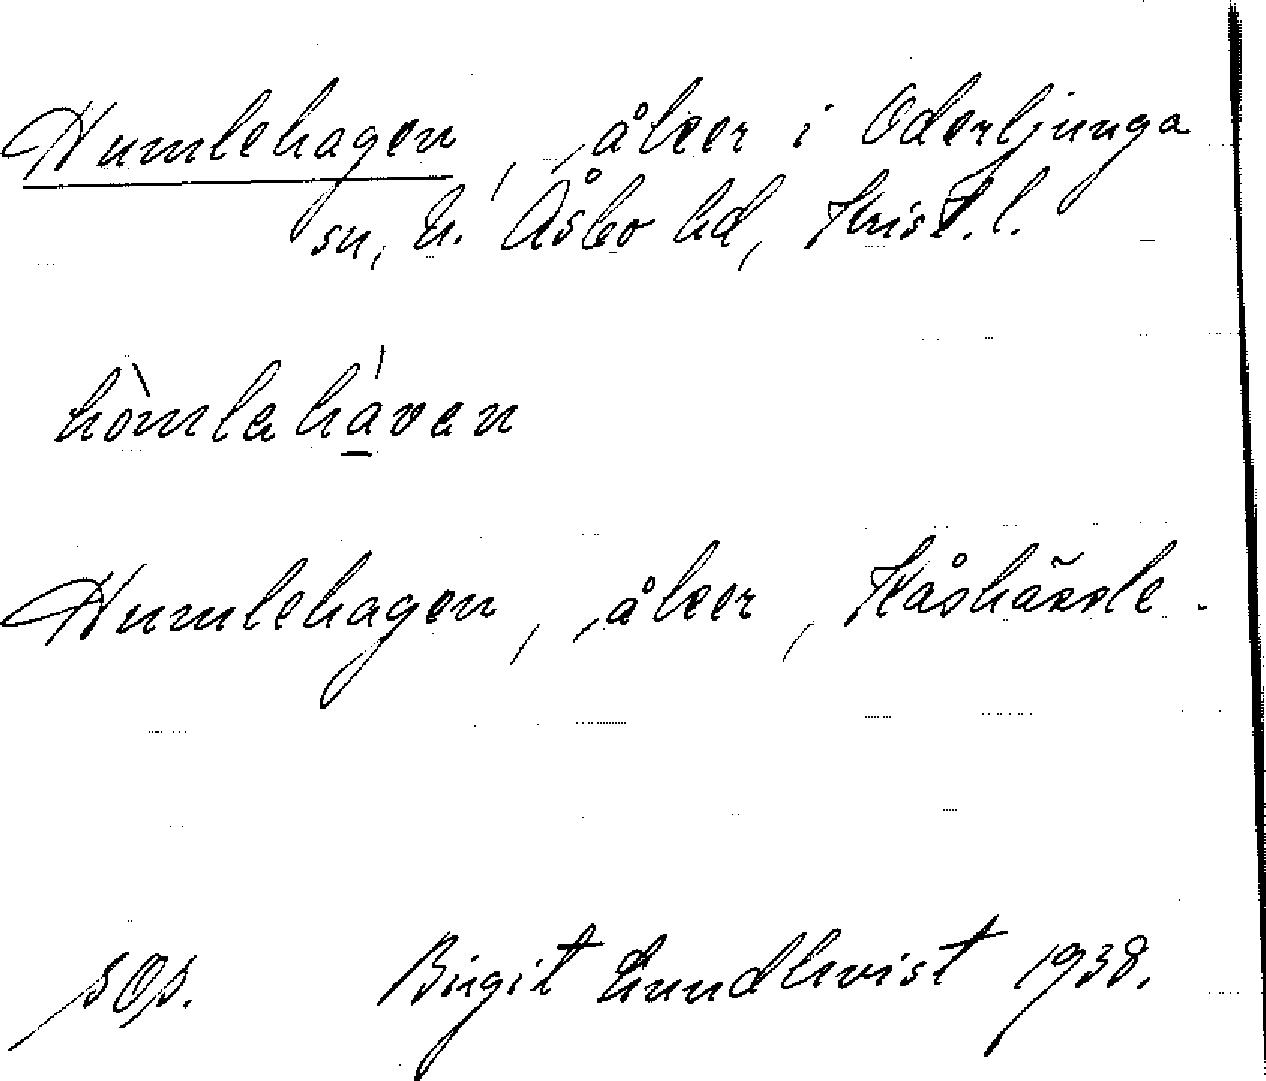 Humlehagen, åker i Oderljunga
sn, N. Åsbo hd, Krist. l.
hòmlahávan
Humlehagen, åker, Kåshässle.
sOs. Birgit Lundkvist 1938.